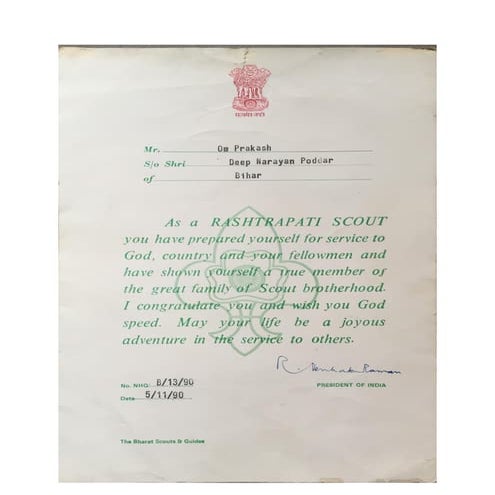 Mr. Om Prakash
S/o Shri Deep Narayan Poddar
of Bihar
As a RASHTRAPATI SCOUT
you have prepared yourself for service to
God, country and your fellowmen and
have shown yourself a true member of
the great family of Scout brotherhood.
I congratulate you and wish you God
speed. May your life be a joyous
adventure in the service to others.
R. Venkataraman
PRESIDENT OF INDIA
No. NHQ: B/13/90
Date 5/11/90
The Bharat Scouts & Guides